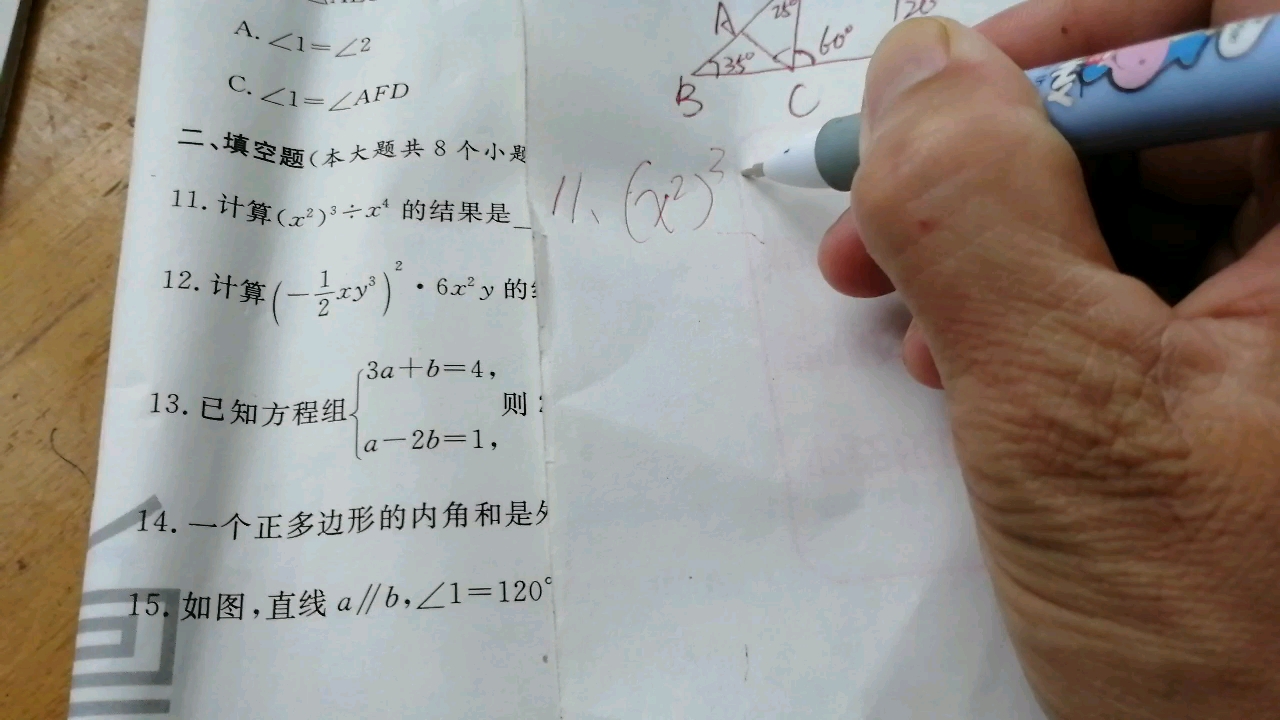 A. ∠1=∠2
C. ∠1=∠AFD
二、填空题(本大题共 8 个小题
11. 计算(x²)³÷x⁴ 的结果是
12. 计算(-1/2xy³)²·6x²y 的
13. 已知方程组{3a+b=4, a-2b=1, 则
14. 一个正多边形的内角和是
15. 如图,直线 a∥b,∠1=120°
A 25° 120
35° 60°
B C
11、(x²)³